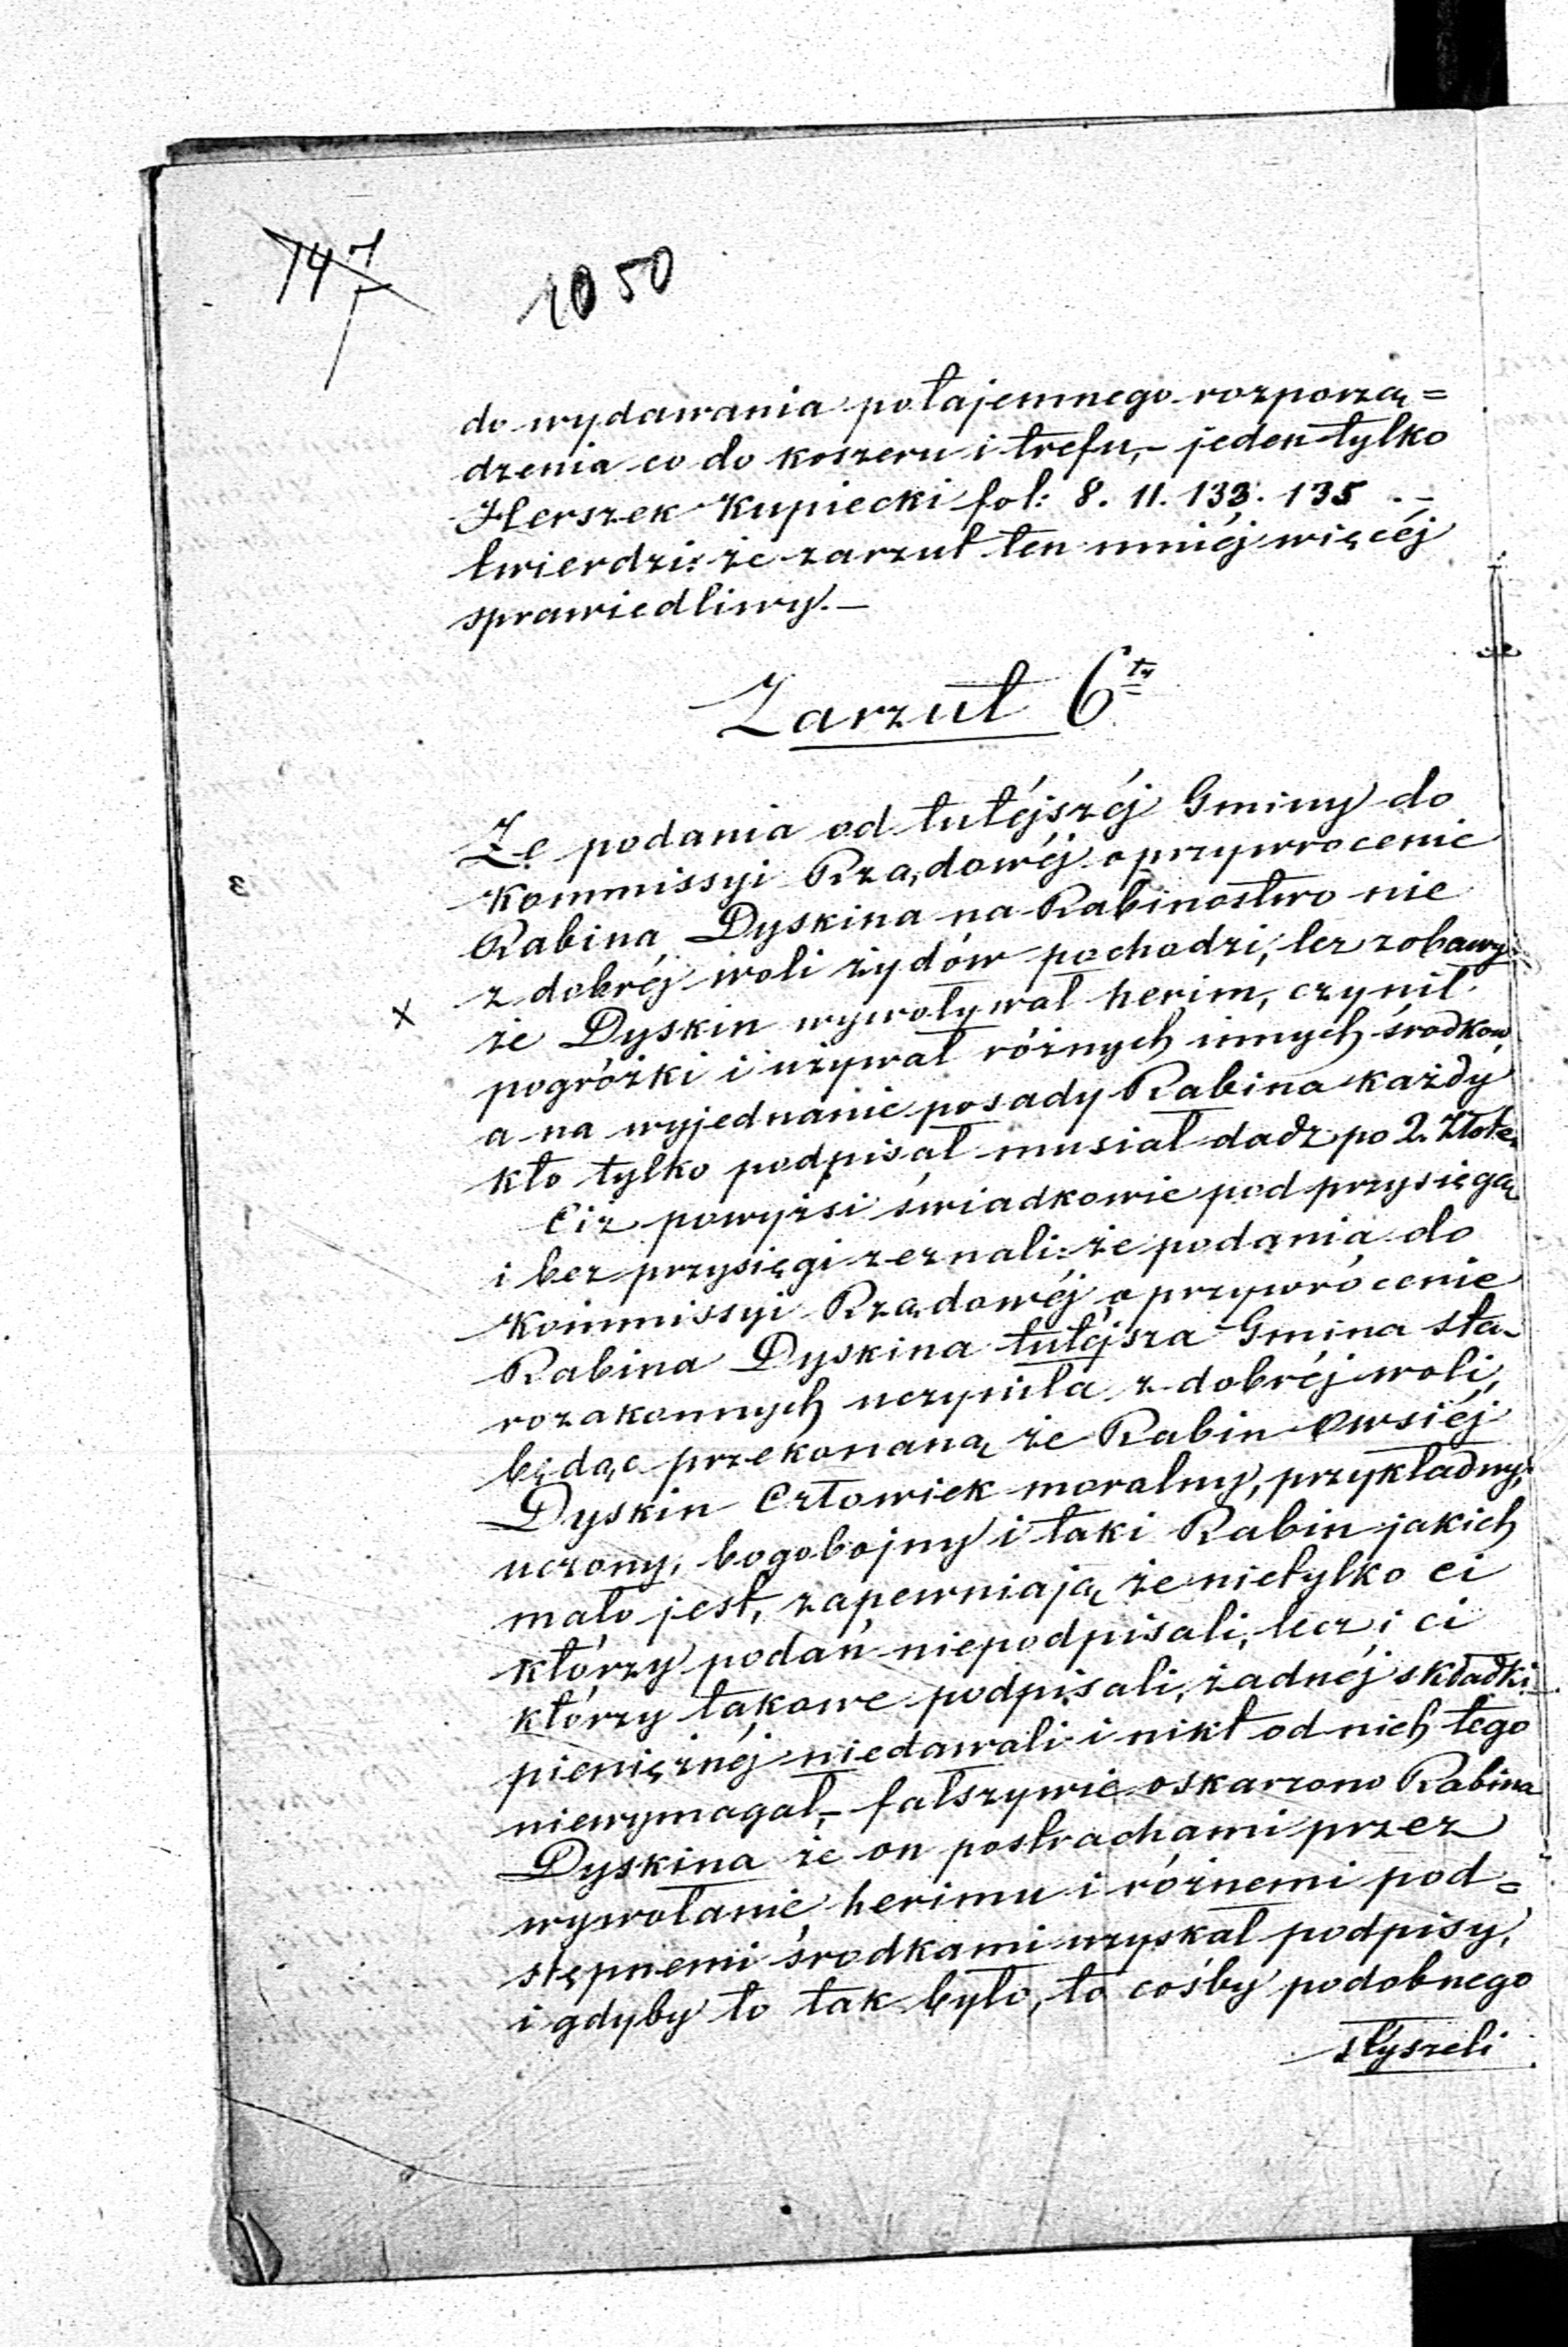 147
1050
do wydawania potajemnego rozporzą=
dzenia co do koszeru i trefu,– jeden tylko
Herszek Kupiecki fol: 8. 11. 133. 135 . –
twierdzi: że zarzut ten mniéj więcéj
sprawiedliwy.–
Zarzut 6ty
Że podania od tutéjszéj Gminy do
Kommissyi Rządowéj o przywrocenie
Rabina Dyskina na Rabinostwo nie
z dobréj woli żydów pochodzi, lez z obawy
X
że Dyskin wywoływał herim, czynił
pogróżki i używał różnych innych środkow,
a na wyjednanie posady Rabina każdy
kto tylko podpisał musiał dadz po 2. Złote.
Ciż powyżsi świadkowie pod przysięgą
i bez przysięgi zeznali: że podania do
Kommissyi Rządowéj o przywrócenie
Rabina Dyskina tutéjsza Gmina sta-
rozakonnych uczyniła z dobréj woli,
będąc przekonaną że Rabin Owsiéj
Dyskin Człowiek moralny, przykładny,
uczony, bogobojny i taki Rabin jakich
mało jest, zapewniają że nietylko ci
którzy podań niepodpisali, lecz i ci
którzy takowe podpisali, żadnéj składki
pieniężnéj niedawali i nikt od nich tego
niewymagał,– fałszywie oskarzono Rabina
Dyskina że on postrachami przez
wywołanie herimu i różnemi pod=
stępnemi środkami uzyskał podpisy,
i gdyby to tak było, to cośby podobnego
słyszeli